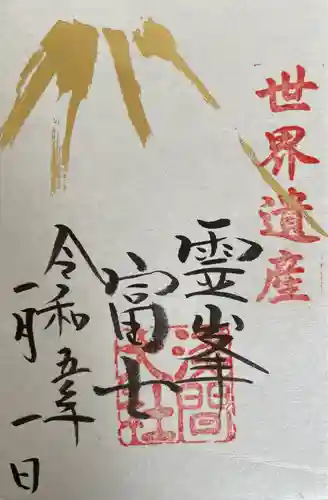 世界遺産
霊峯
富士
淺間
大社
令和五年
一月一日